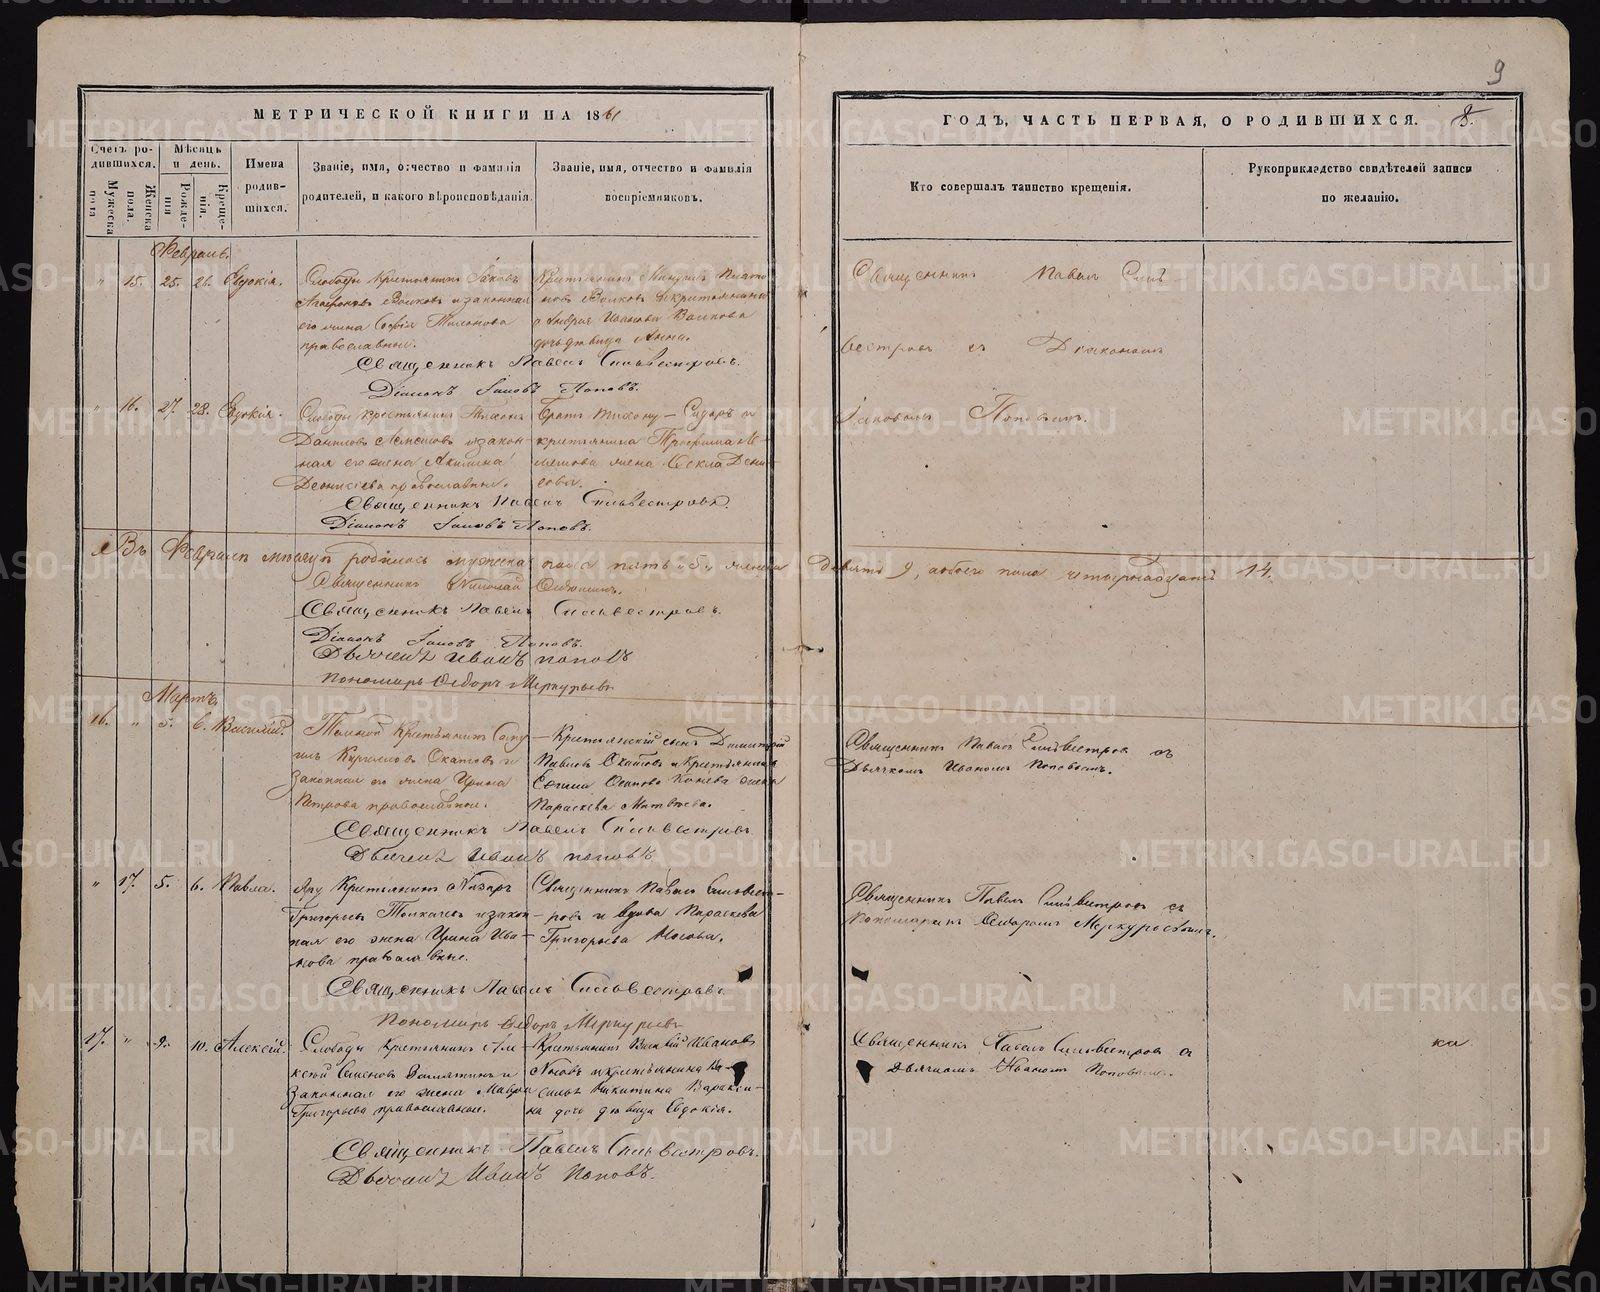 9
МЕТРИЧЕСКОЙ КНИГИ НА 1861
ГОДЪ, ЧАСТЬ ПЕРВАЯ, О РОДИВШИХСЯ.
8.
Счетъ родившихся.
Мужеска пола
Женска пола.
Мѣсяцъ и день.
Рожденія
Крещенія.
Имена родившихся.
Званіе, имя, отчество и фамилія родителей, и какого вѣроисповѣданія.
Званіе, имя, отчество и фамилія воспріемниковъ.
Кто совершалъ таинство крещенія.
Рукоприкладство свидѣтелей записи по желанію.
Февраль.
" 15. 25. 26. Евдокія.
Слободы Крестьянинъ Іаковъ
Волковъ и законная
его жена Софія
православные.
Крестьянинъ
Волковъ и крестьянина
Андрея Иванова Волкова
дочь дѣвица Анна.
Священникъ Павелъ Сильвестровъ съ Діакономъ
Іаковомъ Поповымъ.
Священникъ Павелъ Сильвестровъ.
Діаконъ Іаковъ Поповъ.
" 16. 27. 28. Евдокія.
Слободы крестьянинъ Тихонъ
Даниловъ и законная
его жена Акилина
православные.
Братъ Тихону — Сидоръ и
крестьянина Трофима
жена Фекла
Священникъ Павелъ Сильвестровъ.
Діаконъ Іаковъ Поповъ.
Въ Февралѣ мѣсяцѣ родилось мужеска пола пять 5, женска девять 9, обоего пола четырнадцать 14.
Священникъ Николай
Священникъ Павелъ Сильвестровъ.
Діаконъ Іаковъ Поповъ.
Дьячекъ Иванъ Поповъ
Пономарь Ѳедоръ Меркурьевъ
Мартъ.
16. " 5. 6. Василій.
Крестьянинъ
Кириловъ Охатовъ и
Законная его жена Ирина
Петрова православные.
Крестьянскій сынъ Димитрій
Павловъ Охатовъ и Крестьянина
жена
Параскева Матвѣева.
Священникъ Павелъ Сильвестровъ съ
Дьячкомъ Иваномъ Поповымъ.
Священникъ Павелъ Сильвестровъ.
Дьячекъ Иванъ Поповъ
" 17. 5. 6. Павла.
Крестьянинъ Назаръ
Григорьевъ Толкачевъ и законная
его жена Ирина Иванова
православные.
Священникъ Павелъ Сильвестровъ
и вдова Параскева
Григорьева Носова.
Священникъ Павелъ Сильвестровъ съ
Пономаремъ Ѳедоромъ Меркурьевымъ.
Священникъ Павелъ Сильвестровъ
Пономарь Ѳедоръ Меркурьевъ
17. " 9. 10. Алексій.
Слободы Крестьянинъ Алексій
Семеновъ Замятинъ и
Законная его жена Мавра
Григорьева православные.
Крестьянинъ Василій Ивановъ
и крестьянина
Никитина
дочь дѣвица Евдокія.
Священникъ Павелъ Сильвестровъ съ
Дьячкомъ Иваномъ Поповымъ.
ка
Священникъ Павелъ Сильвестровъ.
Дьячекъ Иванъ Поповъ.
METRIKI.GASO-URAL.RU